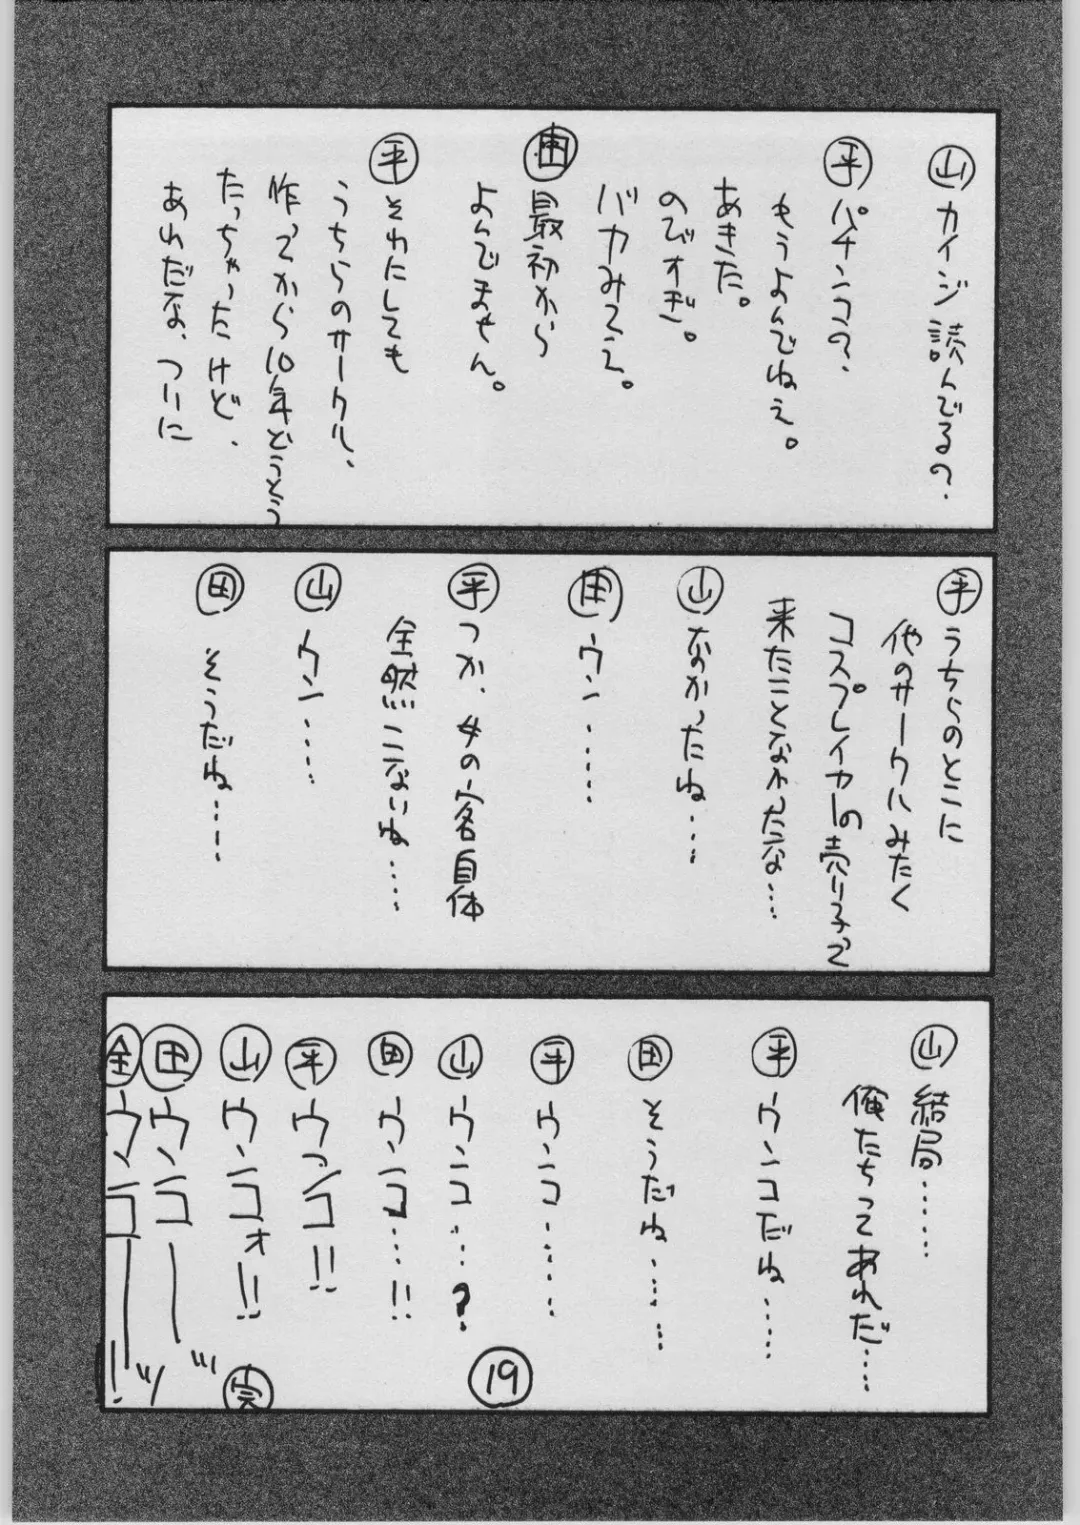 山 カイジ読んでるの?
平 パチンコの?
もうよんでねえ。
あきた。
のびすぎ。
バカみてえ。
田 最初から
よんでません。
平 それにしても
うちらのサークル、
作ってから10年どうとう
たっちゃったけど、
あれだな、ついに
平 うちらのとこに
他のサークルみたく
コスプレイヤーの売り子て
来たことなかんたな…
山 なかったね……
田 ウン……
平 つか、女の客自体
全然こないね……
山 ウン……
田 そうだね……
山 結局……
俺たちってあれだ……
平 ウンコだね……
田 そうだね……
平 ウンコ……
山 ウンコ…?
田 ウンコ…!!
平 ウンコ!!
山 ウンコォ!!
田 ウンコーッ
全 ウンコーッ!
完
19